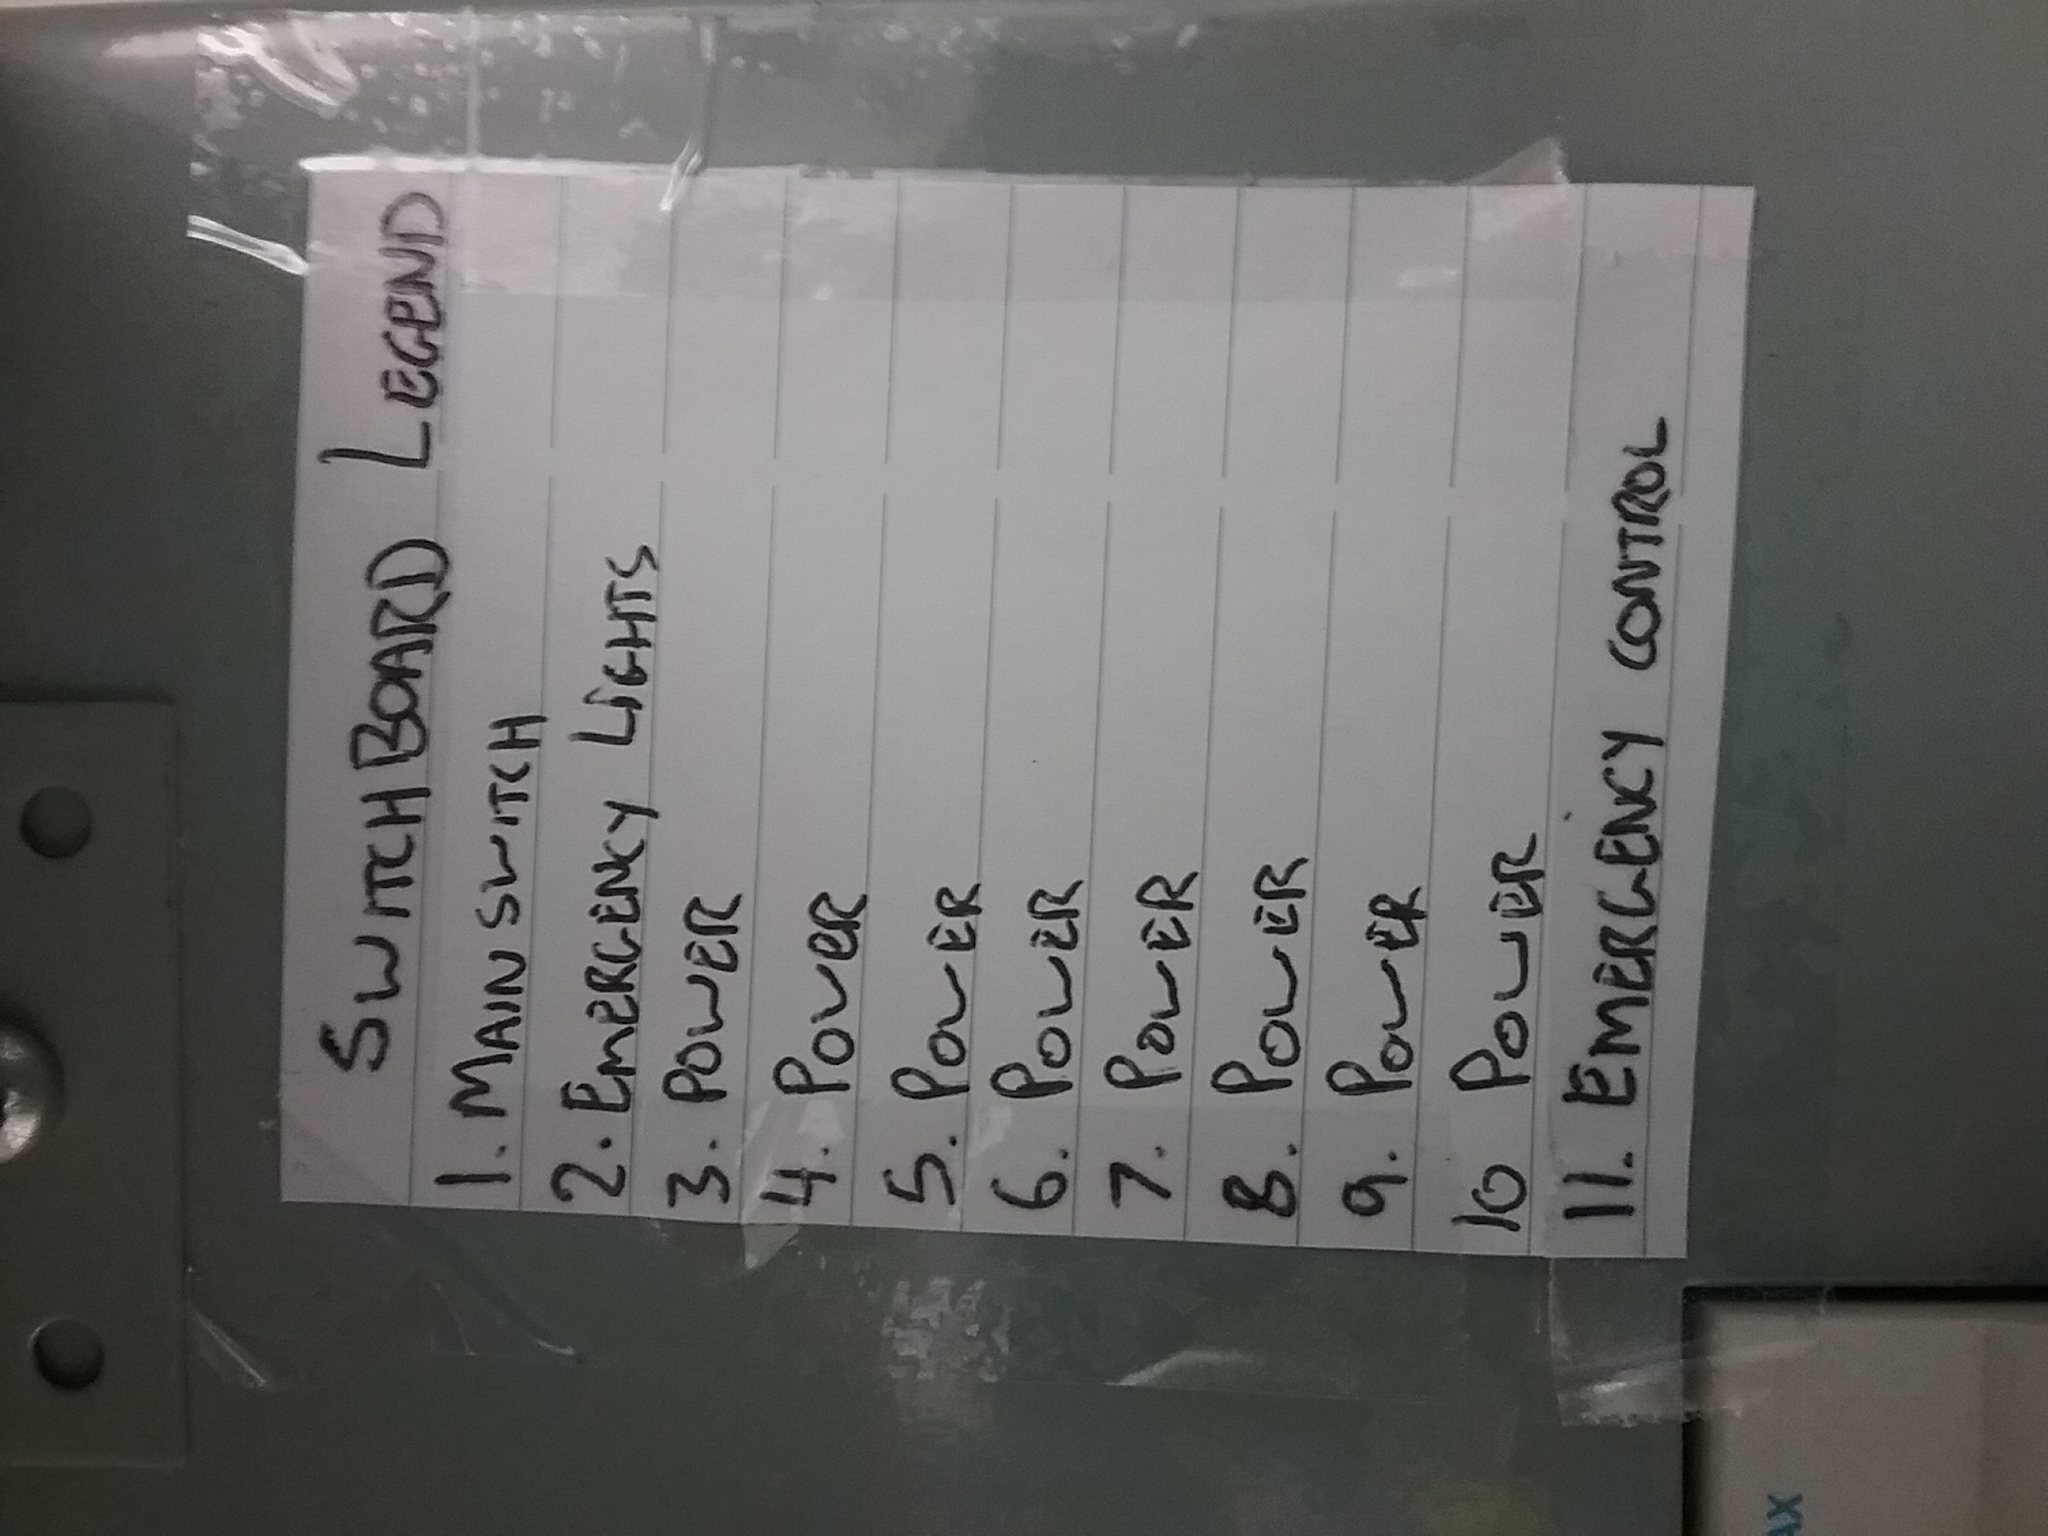 SWITCHBOARD LEGEND
1. MAIN SWITCH
2. EMERGENCY LIGHTS
3. POWER
4. POWER
5. POWER
6. POWER
7. POWER
8. POWER
9. POWER
10 POWER
11. EMERGENCY CONTROL